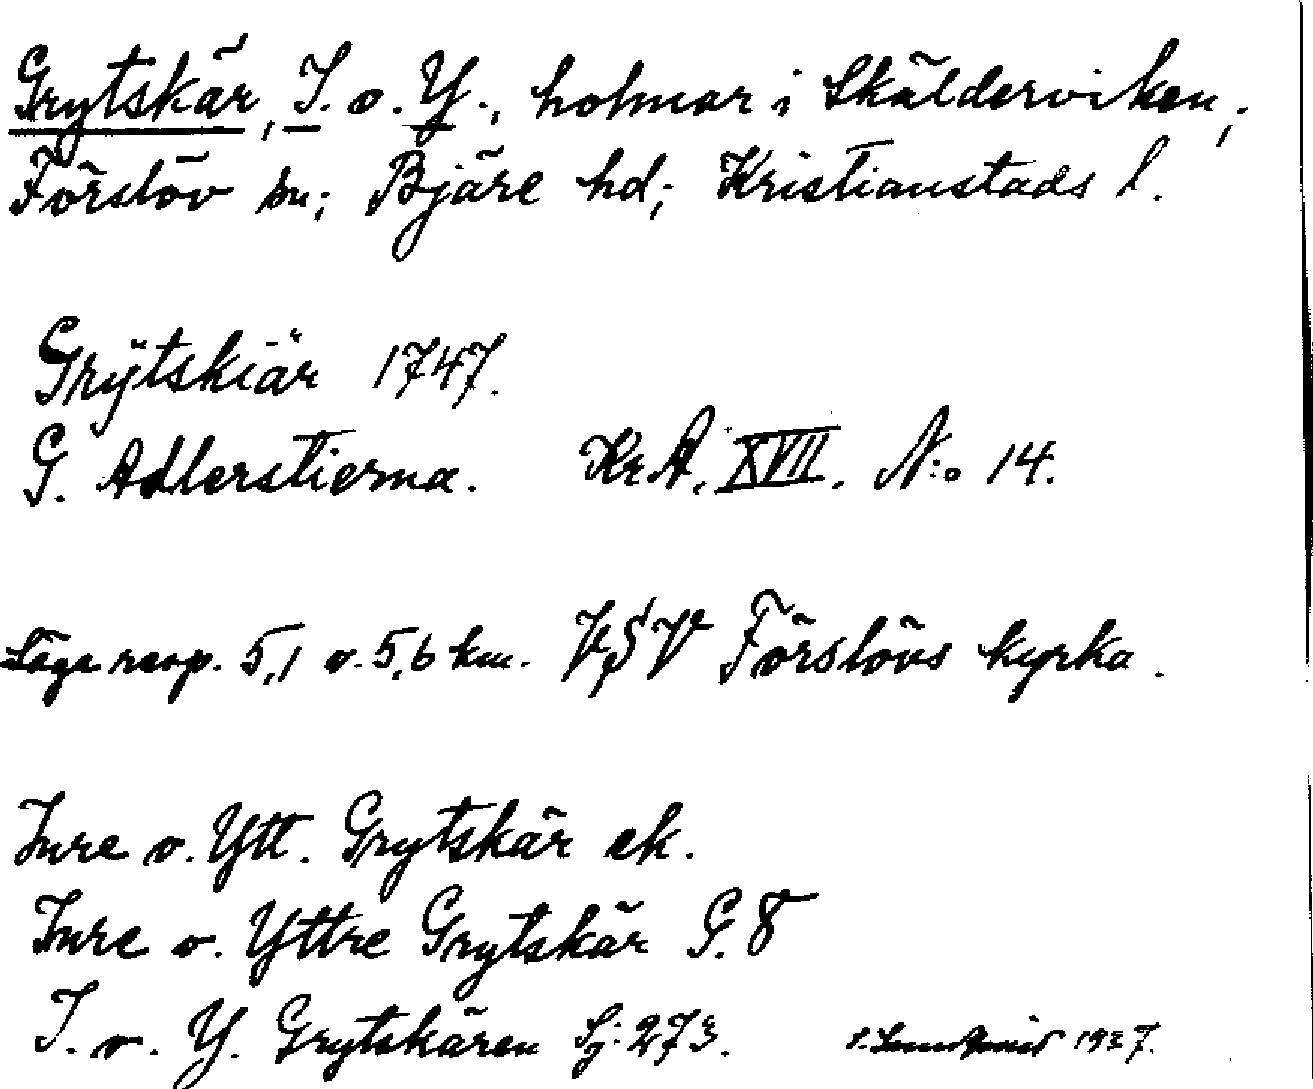 Grytskär, I. o. Y., holmar i Skälderviken,;
Förslöv sn; Bjäre hd; Kristianstads l.
Grÿtskiär 1747.
G. Adlerstierna. Kr.A. XVII. N:o 14.
Läge resp. 5,1 o. 5,6 km. VSV Förslövs kyrka.
Inre o. Ytt. Grytskär ek.
Inre o. Yttre Grytskär G. 8
I. o. Y. Grytskären Sj: 273. 1937.